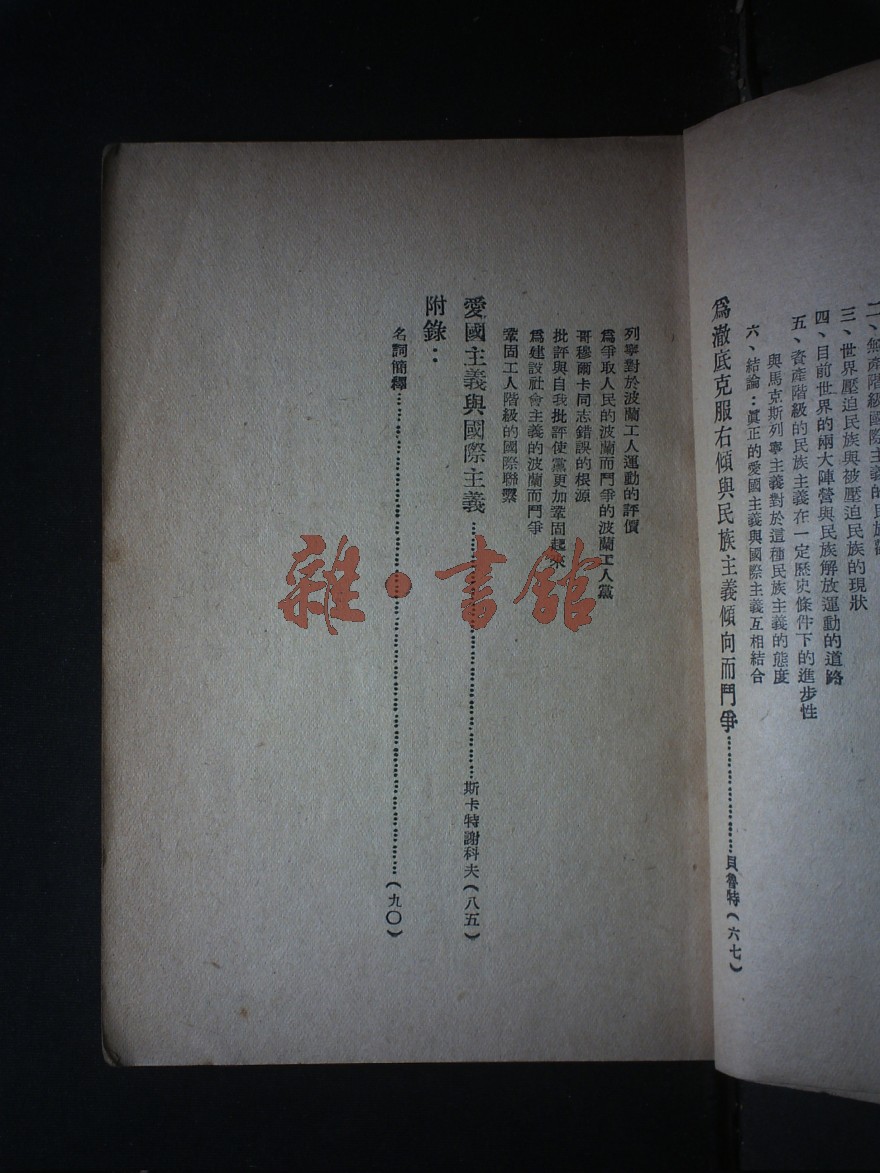 二、無產階級國際主義的民族觀
三、世界壓迫民族與被壓迫民族的現狀
四、目前世界的兩大陣營與民族解放運動的道路
五、資產階級的民族主義在一定歷史條件下的進步性
與馬克斯列寧主義對於這種民族主義的態度
六、結論：眞正的愛國主義與國際主義互相結合
爲澈底克服右傾與民族主義傾向而鬥爭……………………貝魯特（六七）
列寧對於波蘭工人運動的評價
爲爭取人民的波蘭而鬥爭的波蘭工人黨
哥穆爾卡同志錯誤的根源
批評與自我批評使黨更加鞏固起來
爲建設社會主義的波蘭而鬥爭
鞏固工人階級的國際聯繫
愛國主義與國際主義……………………斯卡特謝科夫（八五）
附錄：
名詞簡釋……………………（九〇）
雜·書館